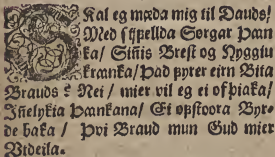 SKal eg mæda mig til Dauds!
Med sijfellda Sorgar Pæn
ka/ Sinis Brest og Nyggiu
krænka/ Þad fyrer eirn Bita
Brauds? Nei / mier vil eg ei ofþiaka/
Jnelykia Þænkana/ Ei ofstoora Byr-
de baka / Þvi Braud mun Gud mier
Vtdeila.